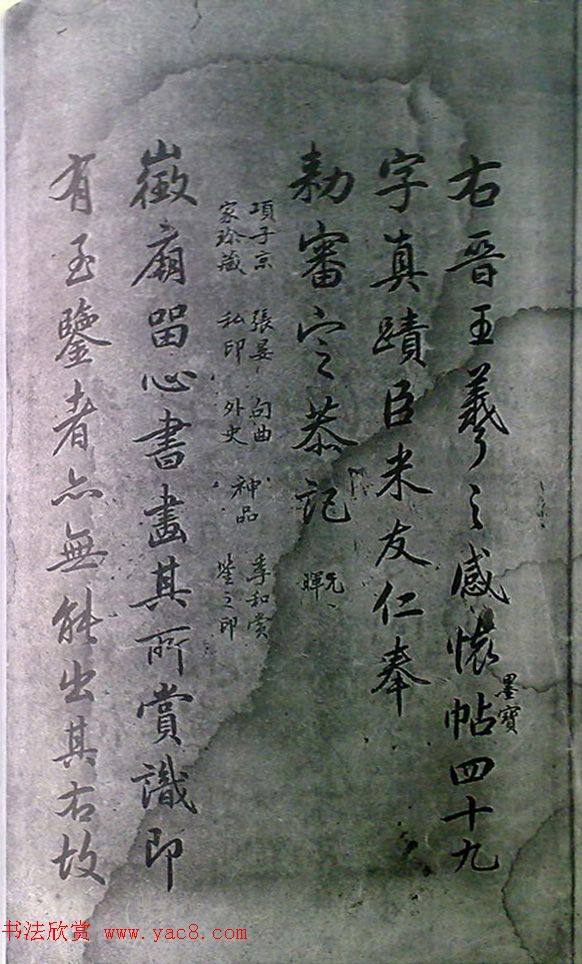 右晉王羲之感懷帖四十九
墨寶
字真蹟臣米友仁奉
勑審定恭記
元暉
項子京 張晏 句曲 神品 季和賞
家珍藏 私印 外史 鑒之印
徽廟留心書畫其所賞識即
有至鑒者亦無能出其右故
书法欣赏 www.yac8.com